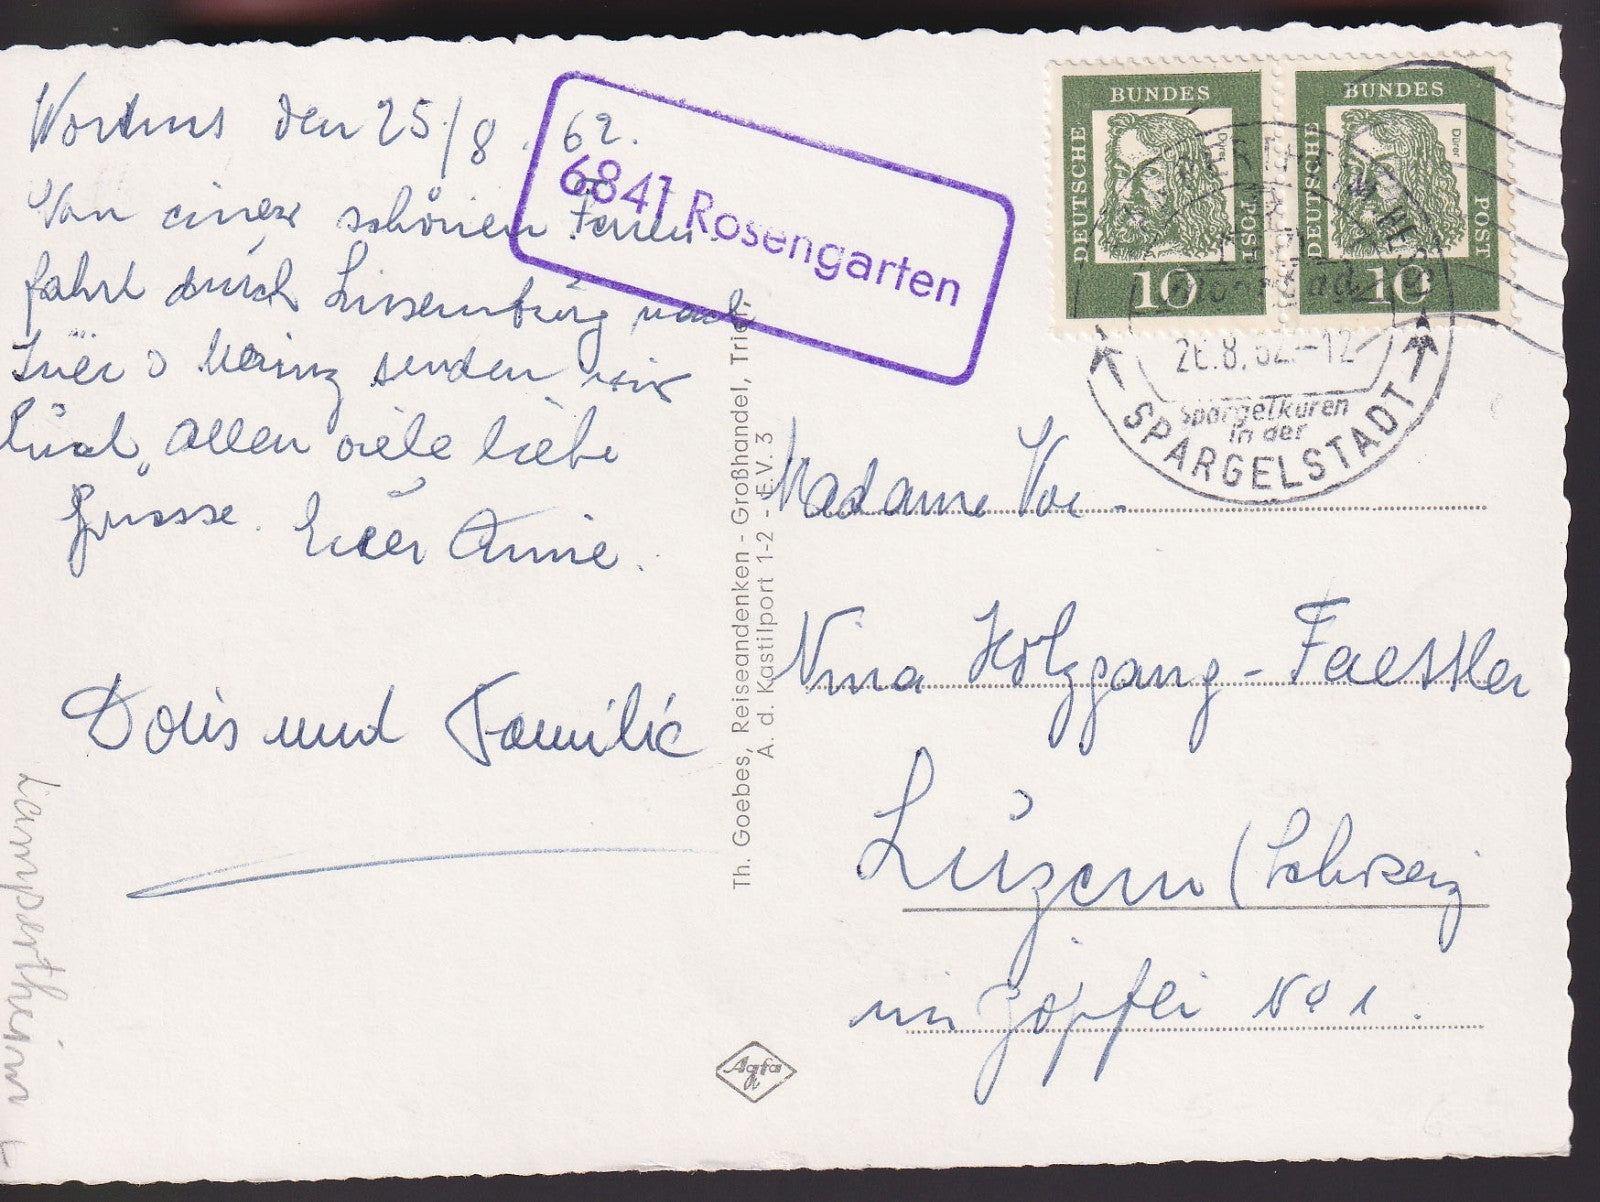 Worms den 25/8. 62.
Von einer schönen Ferien
fahrt durch Luxemburg nach
Trier & Mainz senden wir
Euch allen viele liebe
Grüsse. Euer Annie.
Doris und Familie
Lampertheim
6841 Rosengarten
Th. Goebes, Reiseandenken - Großhandel, Trier,
A. d. Kastilport 1-2 - E.V. 3
DEUTSCHE BUNDES POST
Dürer
10
DEUTSCHE BUNDES POST
Dürer
10
26.8.62.-12
Spargelkuren
in der
SPARGELSTADT
Madame
Nina Holzgang-Faessler
Luzern (Schweiz
im Zöpfli No 1.
Agfa